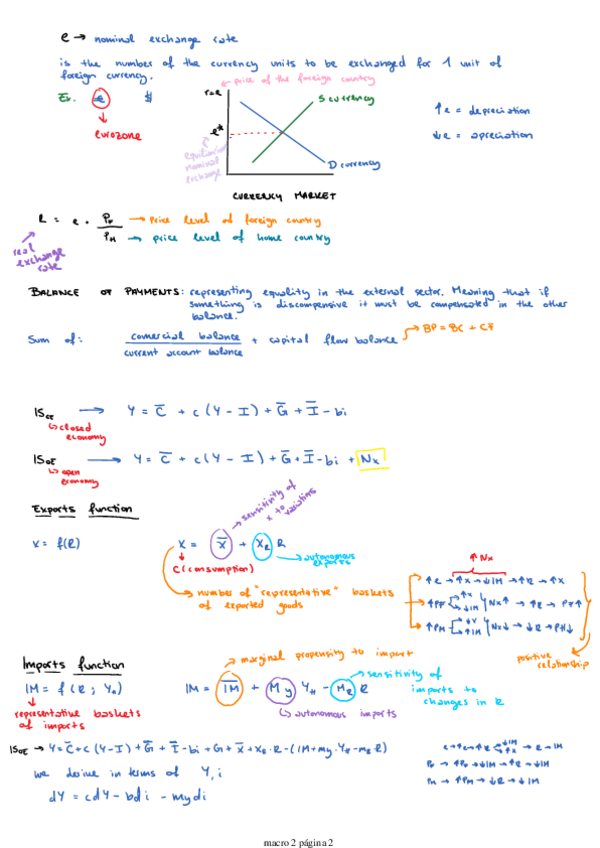 e → nominal exchange rate
is the number of the currency units to be exchanged for 1 unit of
foreign currency.
← price of the foreign country
Ex. € $
↓
eurozone
r=e
S currency
e*
equilibrium
nominal
exchange
D currency
CURRENCY MARKET
↑e = depreciation
↓e = apreciation
R = e · PF → price level of foreign country
PH → price level of home country
real
exchange
rate
BALANCE OF PAYMENTS: representing equality in the external sector. Meaning that if
something is discompensive it must be compensated in the other
balance.
Sum of: comercial balance + capital flow balance → BP = BC + CF
current account balance
ISCE → Y = C̅ + c (Y - I) + G̅ + I̅ - bi
↳ closed
economy
ISOE → Y = C̅ + c (Y - I) + G̅ + I̅ - bi + Nx
↳ open
economy
Exports function
→ sensitivity of
x to
variations
x = f(R)
x = x̅ + xR R
↓
C (consumption)
→ autonomous
exports
→ number of "representative" baskets
of exported goods
↑Nx
↑e → ↑x → ↓IM → ↑R → ↑x
↑PF ↑x ↓IM Nx↑ → ↑R → PF↑
↑PH ↓x ↑IM Nx↓ → ↓R → PH↓
positive
relationship
Imports function
→ marginal propensity to import
IM = f (R ; YH)
↓
representative baskets
of imports
IM = I̅M̅ + My YH - MR R
→ sensitivity of
imports to
changes in R
↳ autonomous imports
ISOE → Y = C̅ + c (Y - I) + G̅ + I̅ - bi + G + x̅ + xR · R - (IM + my · YH - mR R)
we derive in terms of Y, i
dY = cdY - bdi - mydi
PF → ↑PF → ↓IM → ↑R → ↓IM
PH → ↑PH → ↓R → ↓IM
macro 2 página 2